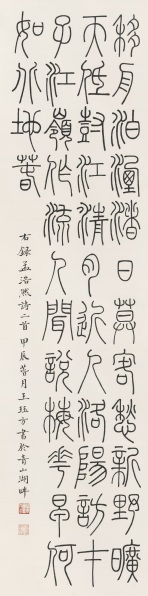 移舟泊煙渚日莫客愁新野曠
天低尌江清月近人洛陽訪才
子江嶺作流人聞說梅花早何
如北地萅
右錄孟浩然詩二首 甲辰萅月王珏方書於青山湖畔